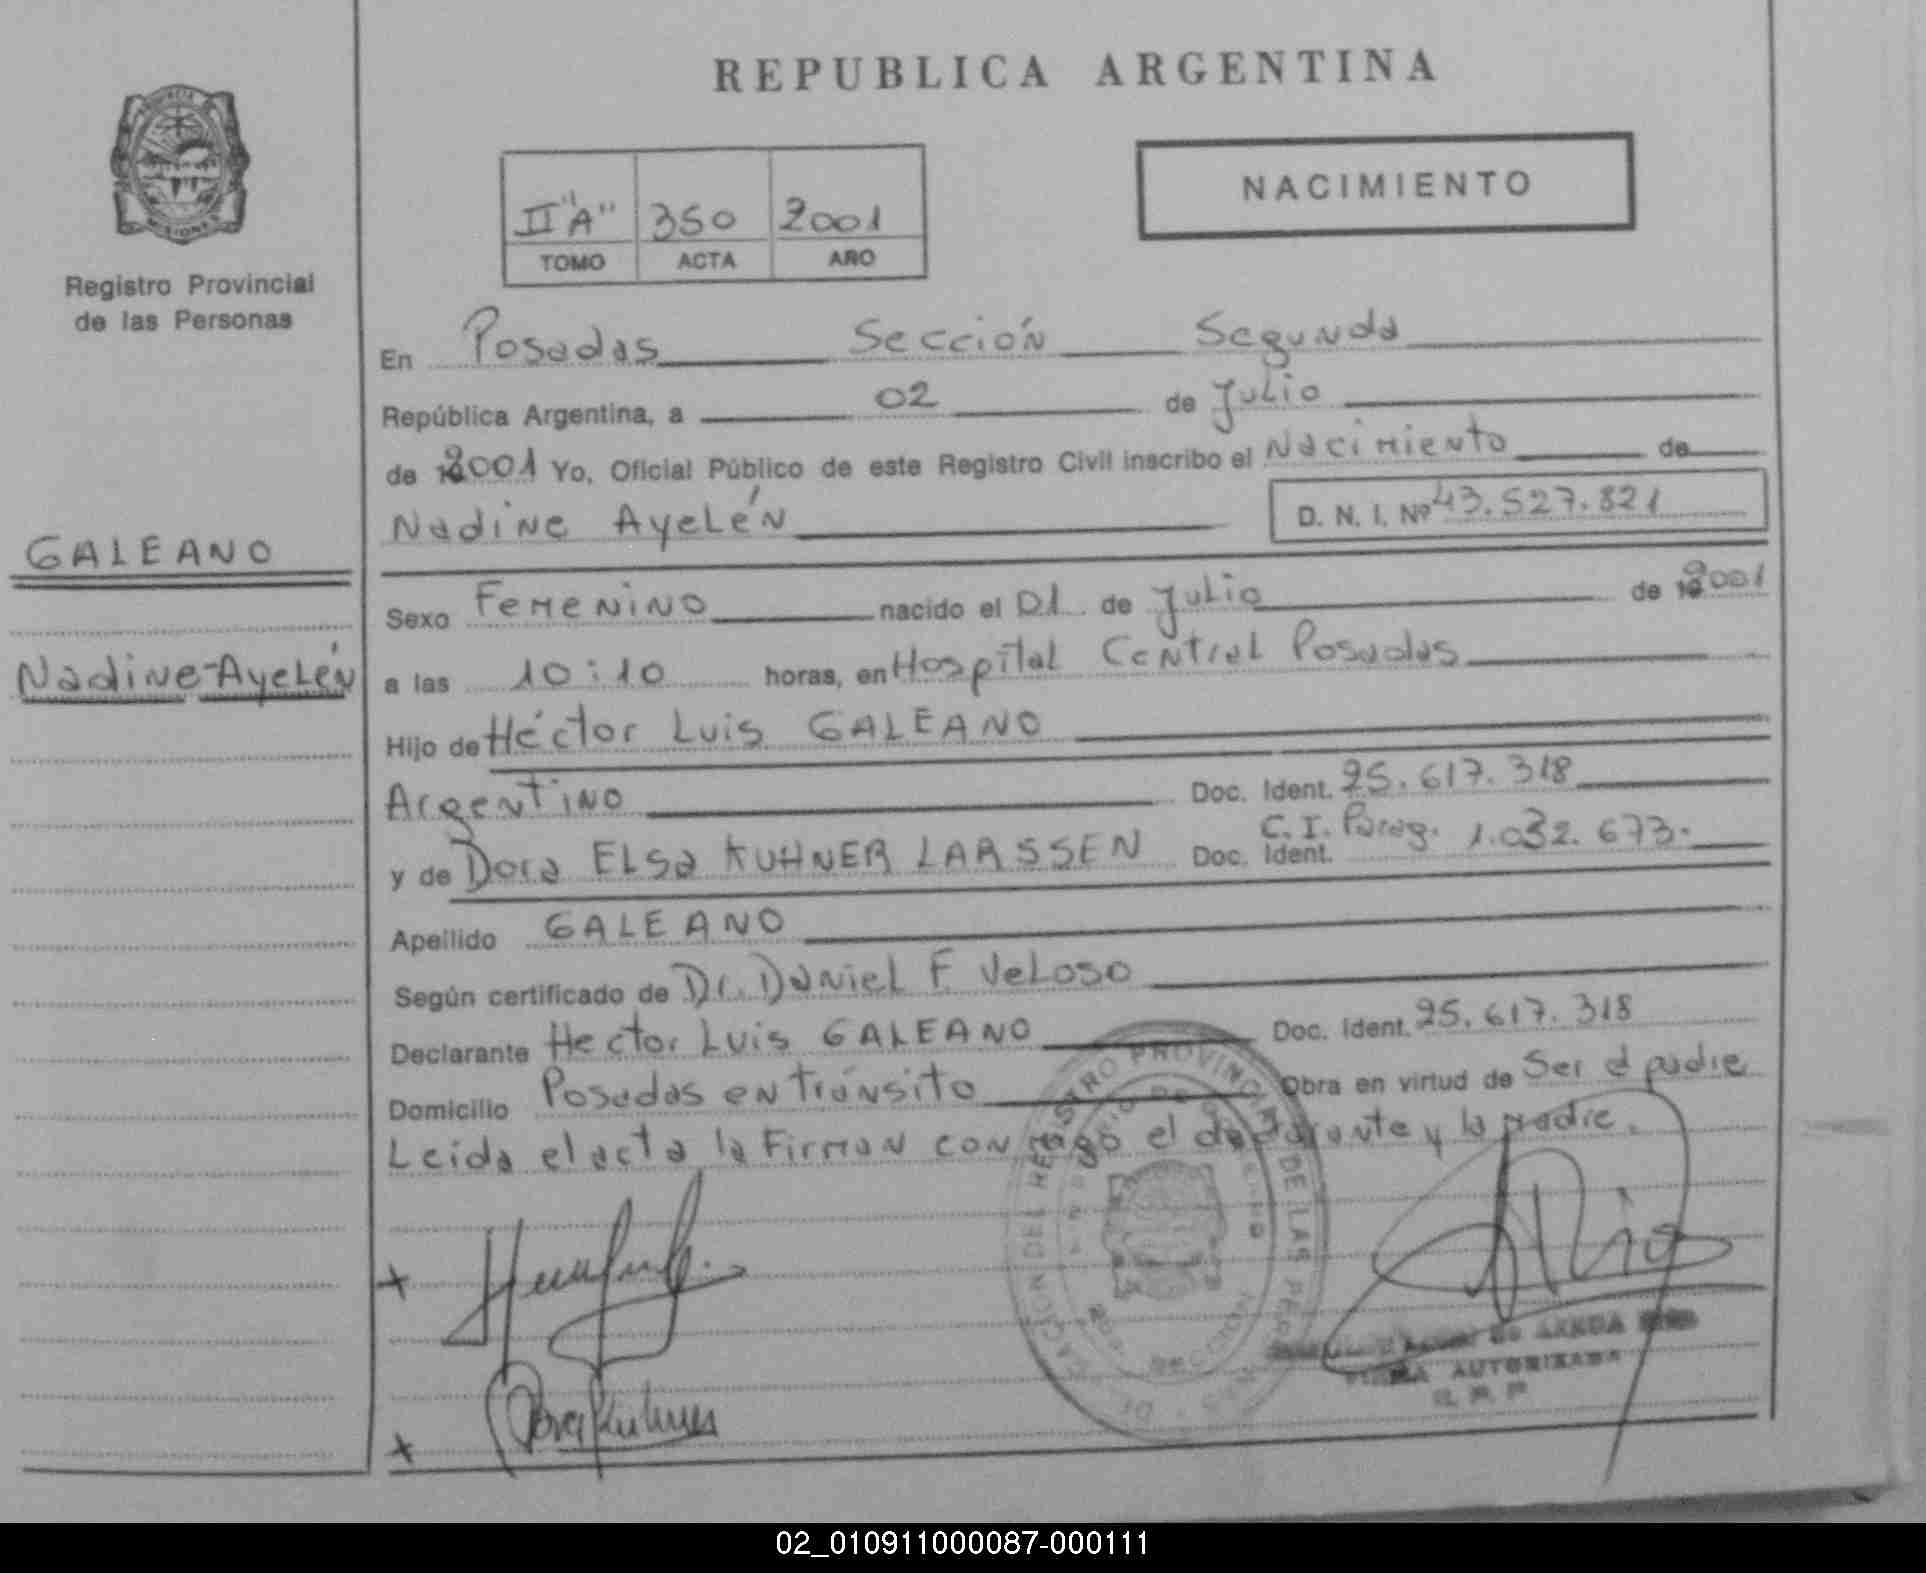 REPUBLICA ARGENTINA
NACIMIENTO
II "A" 350 2001
TOMO ACTA AÑO
Registro Provincial
de las Personas
En Posadas Sección Segunda
República Argentina, a 02 de Julio
de 2001 Yo, Oficial Público de este Registro Civil inscribo el Nacimiento de
Nadine Ayelén D. N. I. Nº 43.527.821
GALEANO
Nadine Ayelén
Sexo Femenino nacido el 01 de Julio de 2001
a las 10:10 horas, en Hospital Central Posadas
Hijo de Héctor Luis GALEANO
Argentino Doc. Ident. 25.617.318
y de Dora ELSA KUHNER LARSSEN Doc. Ident. C.I. Parag. 1.032.673.
Apellido GALEANO
Según certificado de Dr. Daniel F. Veloso
Declarante Hector Luis GALEANO Doc. Ident. 25.617.318
Domicilio Posadas en tránsito Obra en virtud de Ser el padre
Leída el acta la Firman conmigo el declarante y la madre.
FIRMA AUTORIZADA
R. P. P.
02_010911000087-000111